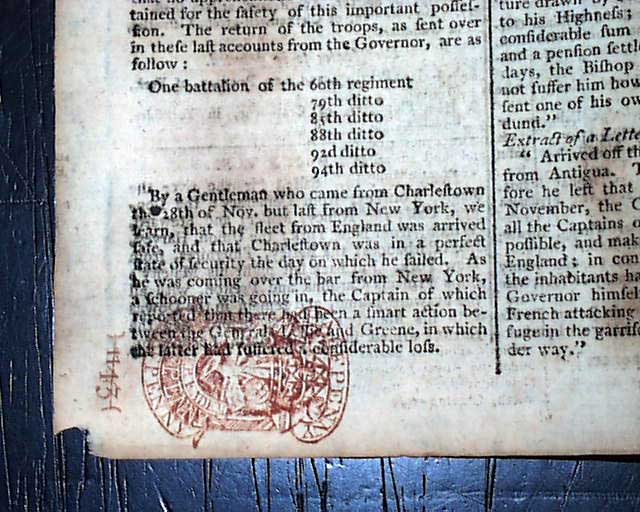 tained for the safety of this important posses-
sion. The return of the troops, as sent over
in these last accounts from the Governor, are as
follow :
One battalion of the 60th regiment
79th ditto
85th ditto
88th ditto
92d ditto
94th ditto
By a Gentleman who came from Charlestown
the 28th of Nov. but last from New York, we
learn, that the fleet from England was arrived
safe, and that Charlestown was in a perfect
state of security the day on which he sailed. As
he was coming over the bar from New York,
a schooner was going in, the Captain of which
reported that there had been a smart action be-
tween the Generals and Greene, in which
the latter had suffered considerable loss.
PENNY
ture drawn
to his Highness;
considerable sum
and a pension settl
days, the Bishop
not suffer him how
sent one of his ow
dund."
Extract of a Lette
" Arrived off th
from Antigua. T
fore he left that
November, the C
all the Captains o
possible, and mak
England; in con
the inhabitants ha
Governor himsel
French attacking
fuge in the garris
der way."